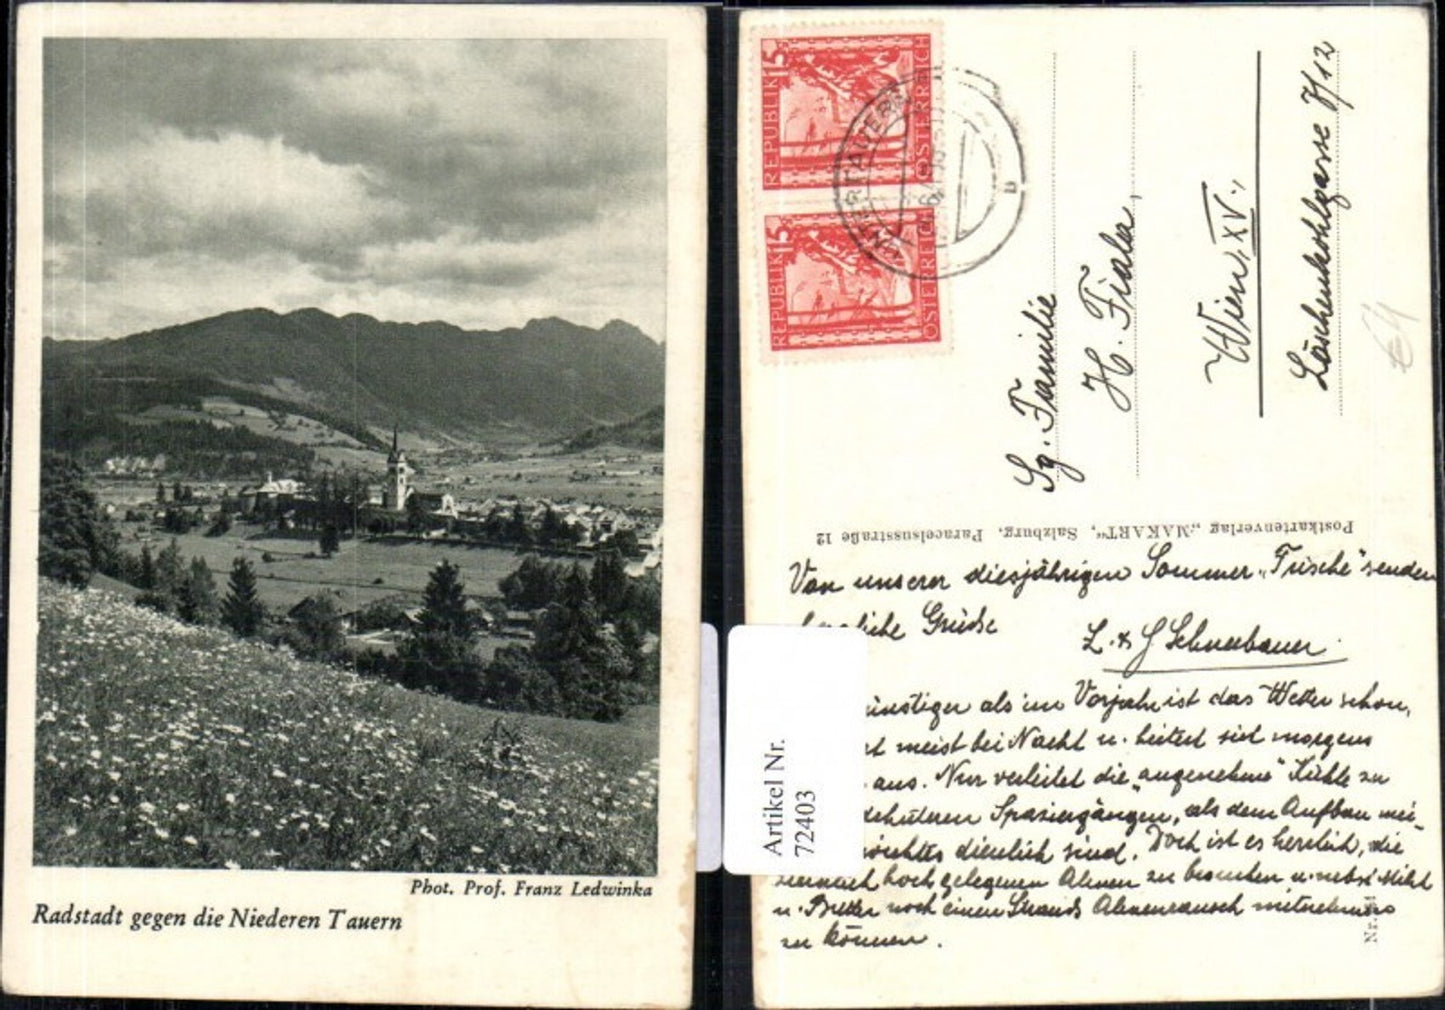 Phot. Prof. Franz Ledwinka
Radstadt gegen die Niederen Tauern
REPUBLIK 15g ÖSTERREICH
REPUBLIK 15g ÖSTERREICH
UNTERTAUERN
Sg. Familie
H. Fiala,
Wien, XV.,
Löschenkohlgasse 7/12
Postkartenverlag „MAKART“, Salzburg, Paracelsusstraße 12
Von unserer diesjährigen Sommer-„Frische“ senden
Grüsse
L. & G Schneebauer
als im Vorjahr ist das Wetter schon,
meist bei Nacht u. heitert sich morgens
aus. Nur verleitet die „angenehme“ Kühle zu
Spaziergängen, als dem Aufbau mei-
dienlich sind. Doch ist es herrlich, die
hoch gelegenen Almen zu besuchen u. nebst Milch
u. Butter noch einen Strauß Almenrausch mitnehmen
zu können.
Nr.
Artikel Nr.
72403